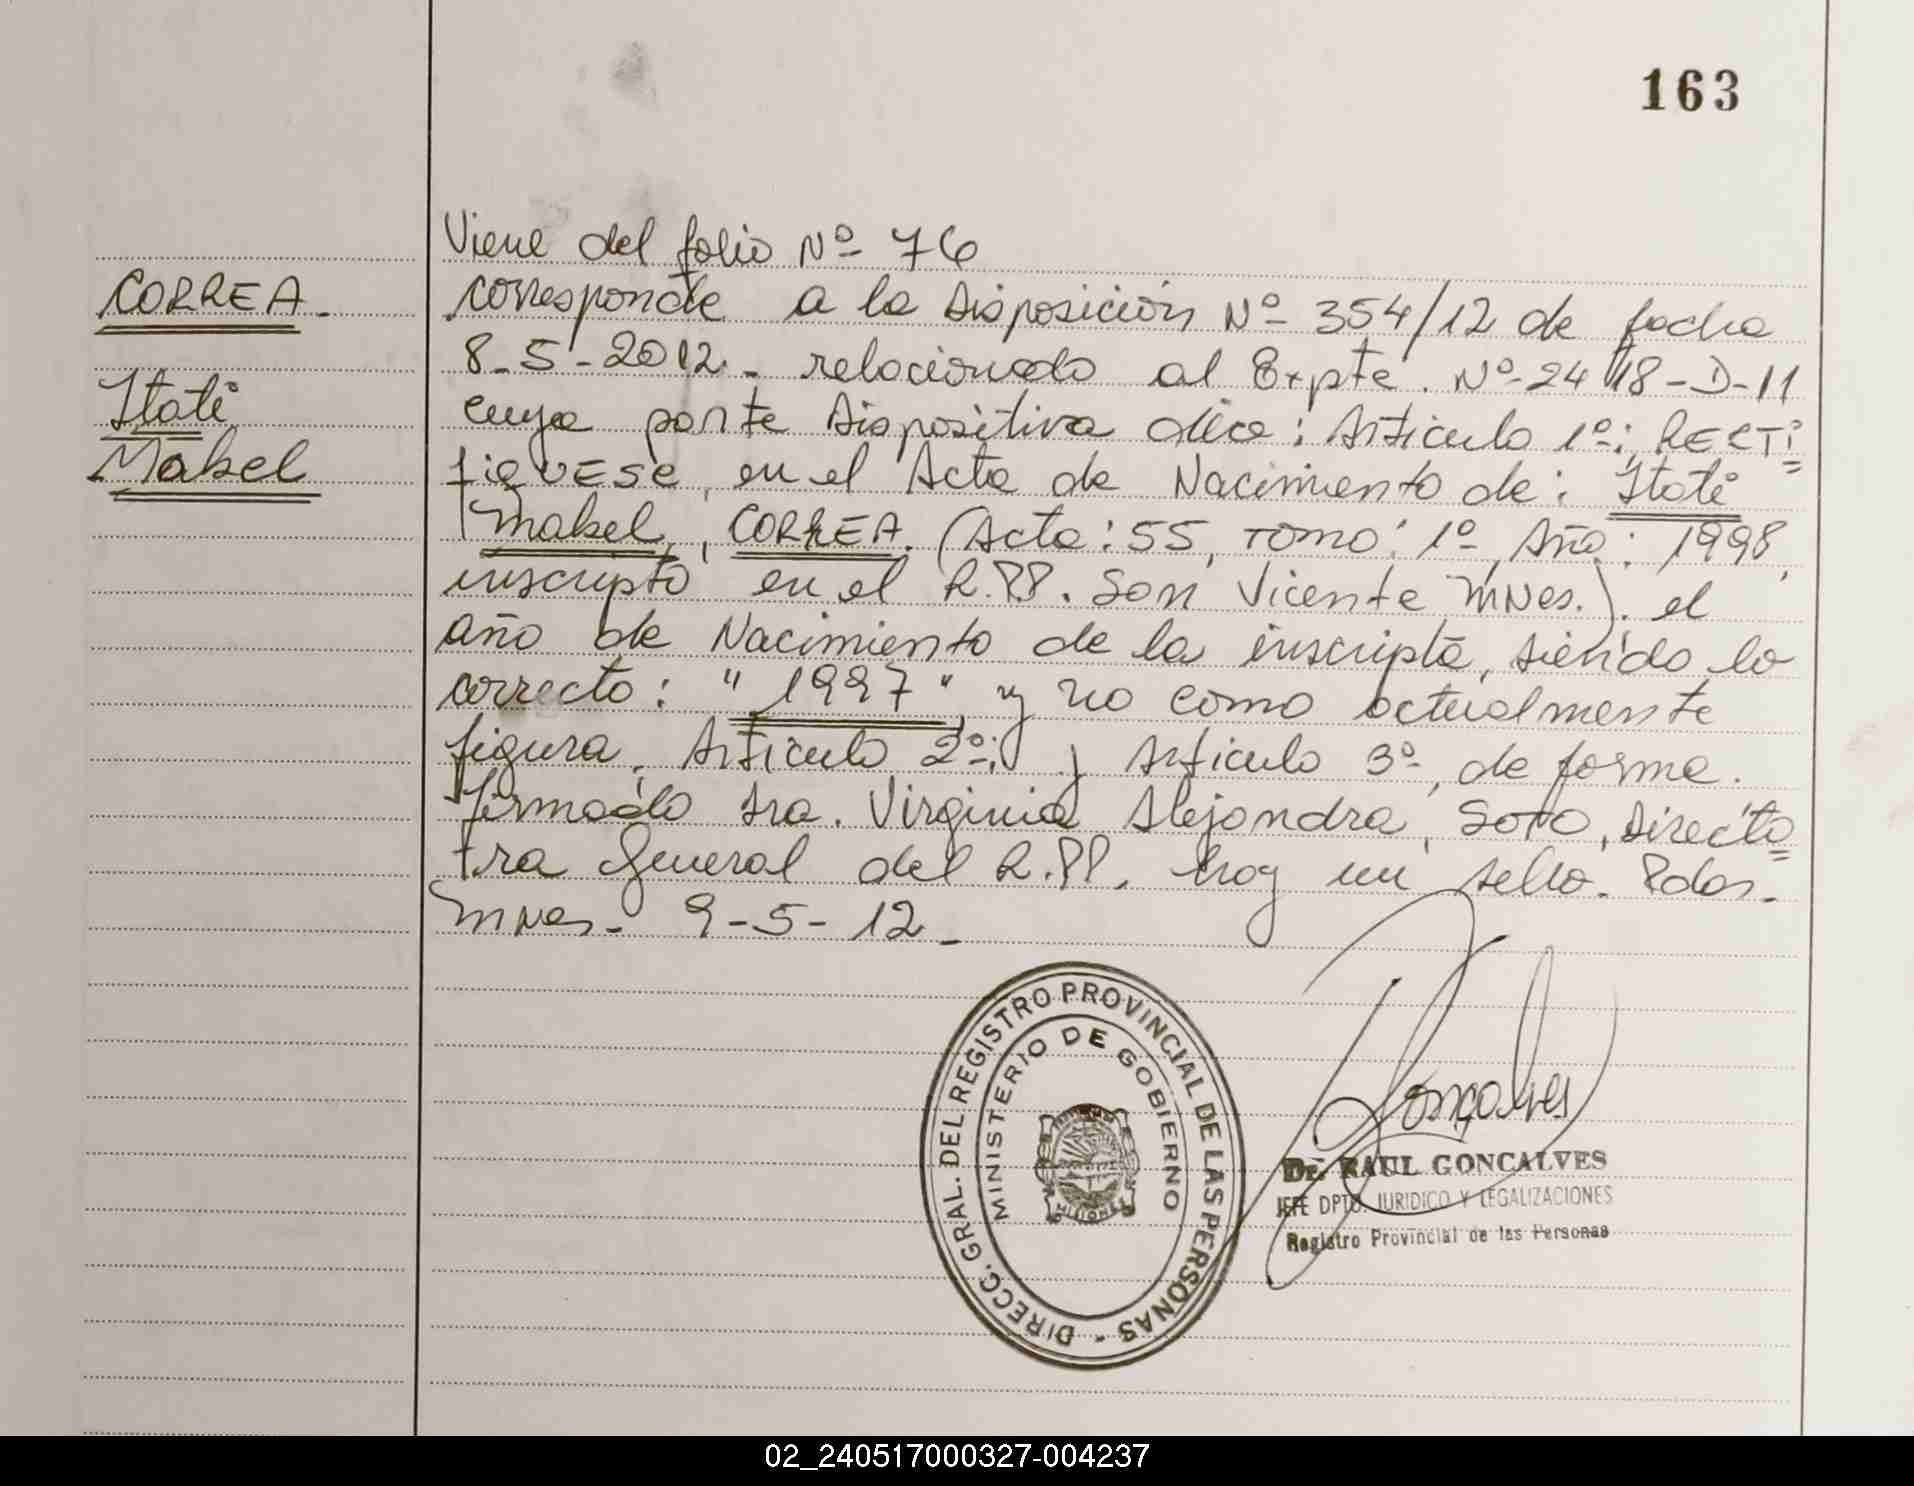 163
CORREA.
Itatí
Mabel
Viene del folio Nº 76
corresponde a la Disposición Nº 354/12 de fecha
8-5-2012. relacionado al Expte. Nº 2418-D-11
cuya parte Dispositiva dice: Artículo 1º: RECTI=
FIQUESE, en el Acta de Nacimiento de: Itatí
Mabel, CORREA. (Acta: 55, Tomo: 1º, Año: 1998,
inscripto en el R.PP. San Vicente Mnes.). el
año de Nacimiento de la inscripta, siendo lo
correcto: "1997" y no como actualmente
figura. Artículo 2º: y Artículo 3º, de forma.
firmado Sra. Virginia Alejandra, SOTO, Directo=
ra General del R.PP. hay un sello. Pdas.
Mnes. 9-5-12.
DIRECC. GRAL. DEL REGISTRO PROVINCIAL DE LAS PERSONAS -
MINISTERIO DE GOBIERNO
MISIONES
Gonçalves
Dr. RAUL GONCALVES
JEFE DPTO. JURIDICO Y LEGALIZACIONES
Registro Provincial de las Personas
02_240517000327-004237